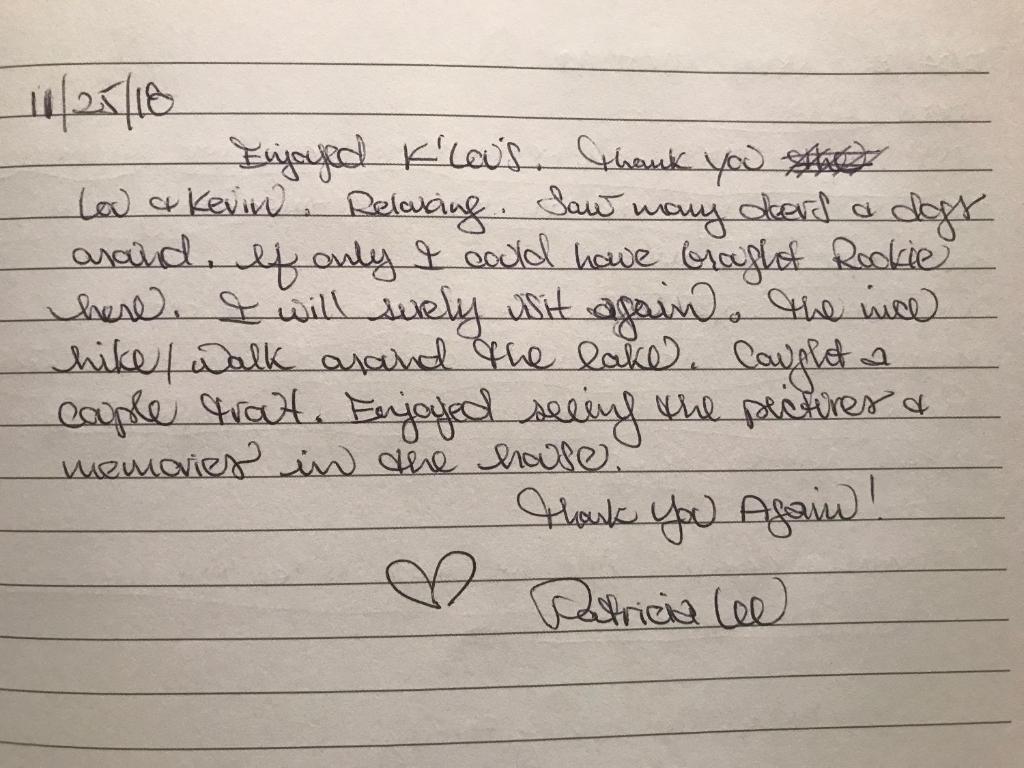 11/25/18
Enjoyed K'Lou's. Thank you
Lou & Kevin. Relaxing. Saw many deers & dogs
around. If only I could have brought Rookie
here. I will surely visit again. The nice
hike/walk around the lake. Caught a
couple trout. Enjoyed seeing the pictures &
memories in the house.
Thank you Again!
Patricia Lee